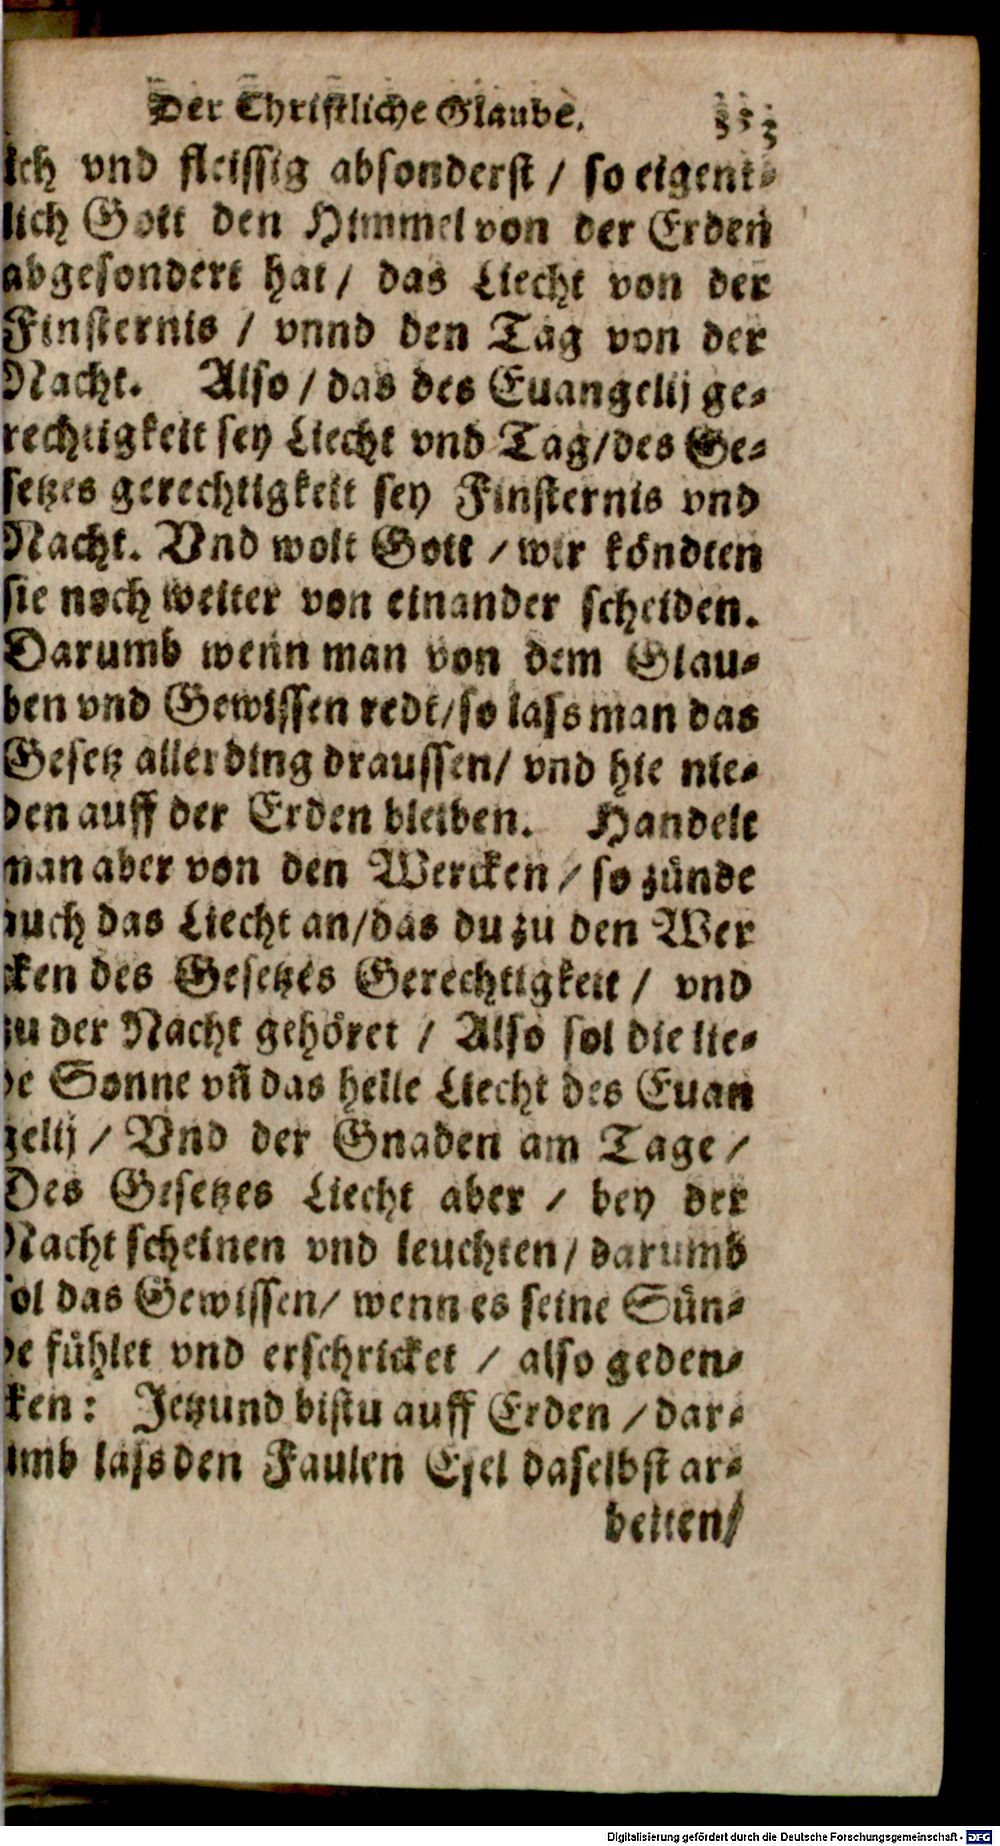 Der Christliche Glaube.
lich vnd fleissig absonderst / so eigent-
lich Gott den Himmel von der Erden
abgesondert hat / das Liecht von der
Finsternis / vnnd den Tag von der
Nacht. Also / das des Euangelij ge-
rechtigkeit sey Liecht vnd Tag / des Ge-
setzes gerechtigkeit sey Finsternis vnd
Nacht. Vnd wolt Gott / wir köndten
sie noch weiter von einander scheiden.
Darumb wenn man von dem Glau-
ben vnd Gewissen redt / so lass man das
Gesetz allerding draussen / vnd hie nie-
den auff der Erden bleiben. Handelt
man aber von den Wercken / so zünde
auch das Liecht an / das du zu den Wer
cken des Gesetzes Gerechtigkeit / vnd
zu der Nacht gehöret / Also sol die lie-
be Sonne vn̄ das helle Liecht des Euan
gelij / Vnd der Gnaden am Tage /
Des Gesetzes Liecht aber / bey der
Nacht scheinen vnd leuchten / darumb
sol das Gewissen / wenn es seine Sün-
de fühlet vnd erschricket / also geden-
ken: Jetzund bistu auff Erden / dar-
umb lass den Faulen Esel daselbst ar-
beiten /
Digitalisierung gefördert durch die Deutsche Forschungsgemeinschaft - DFG